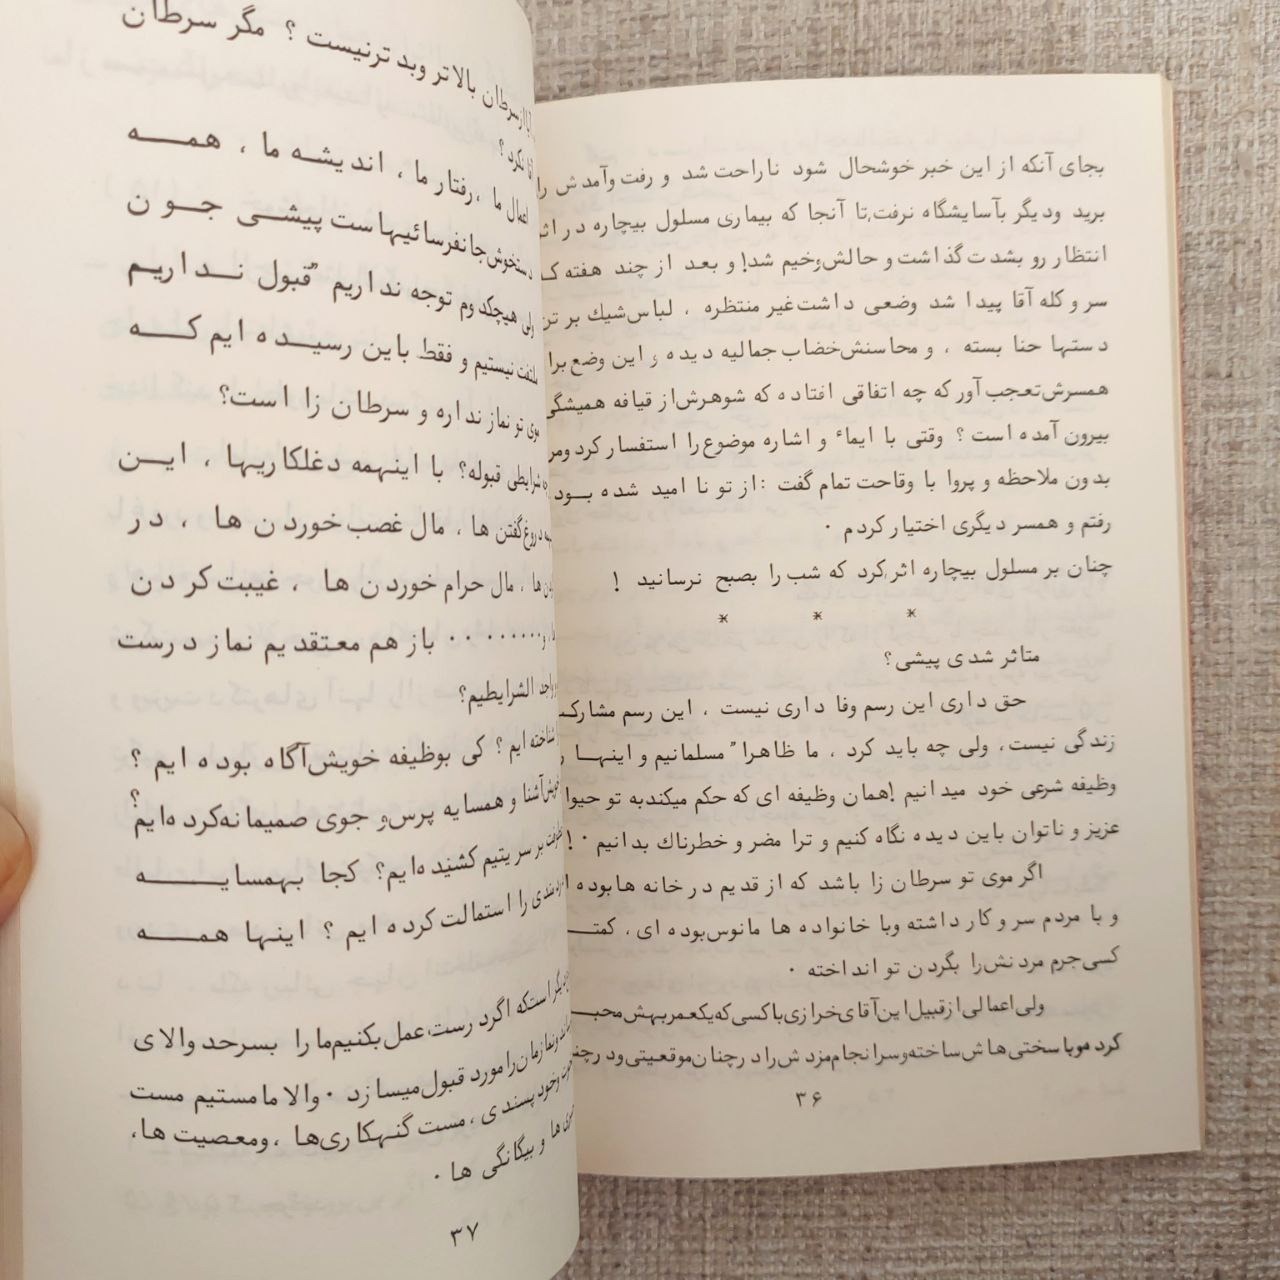 بجای آنکه از این خبر خوشحال شود ناراحت شد و رفت وآمدش را
برید ودیگر بآسایشگاه نرفت, تا آنجا که بیماری مسلول بیچاره در اثر
انتظار رو بشدت گذاشت و حالش وخیم شد! و بعد از چند هفته که
سر و کله آقا پیدا شد وضعی داشت غیر منتظره ، لباس شیك بر تن
دستها حنا بسته ، و محاسنش خضاب جمالیه دیده و این وضع برا
همسرش تعجب آور که چه اتفاقی افتاده که شوهرش از قیافه همیشگی
بیرون آمده است ؟ وقتی با ایماء و اشاره موضوع را استفسار کرد ومر
بدون ملاحظه و پروا با وقاحت تمام گفت : از تو نا امید شده بـود
رفتم و همسر دیگری اختیار کردم .
چنان بر مسلول بیچاره اثر کرد که شب را بصبح نرسانید !
* * *
متاثر شدی پیشی؟
حق داری این رسم وفا داری نیست ، این رسم مشارکت
زندگی نیست، ولی چه باید کرد ، ما ظاهرا" مسلمانیم و اینهـا ر
وظیفه شرعی خود میدانیم !همان وظیفه ای که حکم میکندبه تو حیوا
عزیز و ناتوان باین دیده نگاه کنیم و ترا مضر و خطرناك بدانیم . !
اگر موی تو سرطان زا باشد که از قدیم در خانه هابوده ا
و با مردم سر و کار داشته وبا خانواده ها مانوس بوده ای ، کمتـ
کسی جرم مردنش را بگردن تو انداخته .
ولی اعمالی ازقبیل این آقای خرازی باکسی که یکعمربهش محبـ
کرد موبا سختی هاش ساخته وسرانجام مزدش رادر چنان موقعیتی ودرچنـ
۳۶
مگر سرطان
ازسرطان بالاتر وبد ترنیست ؟
نکرد ؟
اعمال ما ،رفتار ما ، اندیشه ما ، همـــه
دستخوش جانفرسائیهاست پیشـی جـون
ولی هیچکدوم توجه نداریم "قبول نـداریم
ملتفت نیستیم و فقط باین رسیـده ایم کـه
موی تو نماز نداره و سرطان زا است؟
شرایطی قبوله؟ با اینهمه دغلکاریها ، ایـن
دروغ گفتن ها ، مال غصب خوردن ها ، در
ها ، مال حرام خوردن ها ، غیبت کردن
و........ باز هم معتقدیم نماز درست
واجد الشرایطیم؟
شناخته ایم ؟ کی بوظیفه خویش آگاه بوده ایم ؟
آشنا و همسایه پرس و جوی صمیمانه کرده ایم ؟
بر سر یتیم کشیده ایم؟ کجا بهمسایـــــه
را استمالت کرده ایم ؟ اینهـا همـــه
است که اگردرست عمل بکنیم ما را بسرحد والای
ونمازمان را مورد قبول میسازد . والا ما مستیم مست
وخود پسندی ، مست گنهکاری ها ، ومعصیت ها،
ها و بیگانگی ها .
۳۷